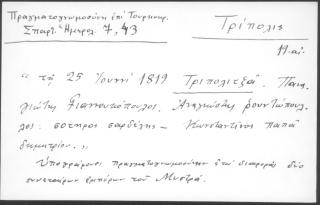 Πραγματογνωμοσύνη ἐπί Τουρκοκρ.
Σπαρτ. Ἡμερολ. 7, 43
Τρίπολις
19 αἰ.
" τῇ 25 Ἰουνί 1819 Τριπολιτζᾶ. Πανα-
γιώτης Γιαννυτόπουλος. Ἀναγνώστης βουντόπουλ
λος: σοτηρος σαρδέλης – Κωνσταντῖνος παπᾶ
δημητρίου.„
Ὑπογράφουσι πραγματογνωμοσύνην διαφορᾶς δύο
συνεταίρων ἐμπόρων τοῦ Μυστρᾶ.